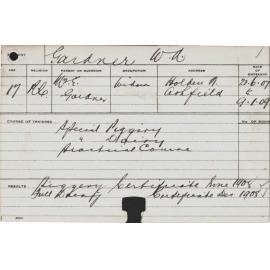 Gardner W A
AGE RELIGION PARENT OR GUARDIAN OCCUPATION ADDRESS DATE OF ENTRANCE
17 R.C. Mrs E. Gardner Widow Holden St Ashfield 21.6.07 to 9.1.09
COURSE OF TRAINING
Special Piggery
" Dairy
Practical Course
RESULTS Piggery Certificate June 1908
Full Dairy Certificate Dec. 1908